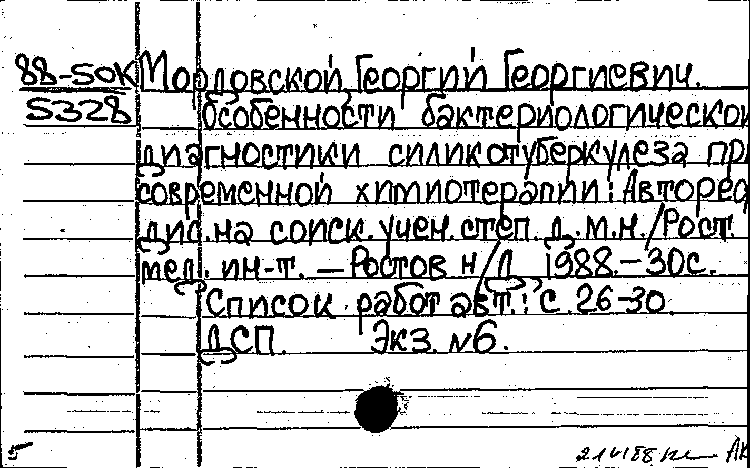 88-50к Мордовской, Георгий Георгиевич.
5328 Особенности бактериологической
диагностики силикотуберкулеза при
современной химиотерапии: Автореф
дис. на соиск. учен. степ. д.м.н. / Рост.
мед. ин-т. — Ростов н/Д, 1988. — 30с.
Список работ авт.: с. 26-30.
ДСП. Экз. №6.
5